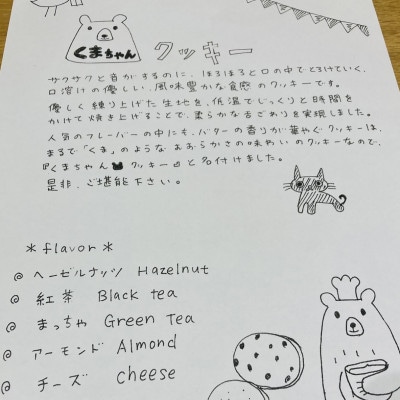 くまちゃん クッキー
サクサクと音がするのに、ほろほろと口の中でとろけていく、
口溶けの優しい、風味豊かな食感のクッキーです。
優しく練り上げた生地を、低温でじっくりと時間を
かけて焼き上げることで、柔らかな舌ざわりを実現しました。
人気のフレーバーの中にも、バターの香りが華やぐクッキーは、
まるで「くま」のような おおらかさの味わいのクッキーなので、
『くまちゃん クッキー』と名付けました。
是非、ご堪能下さい。
*flavor*
@ ヘーゼルナッツ Hazelnut
@ 紅茶 Black tea
@ まっちゃ Green Tea
@ アーモンド Almond
@ チーズ cheese